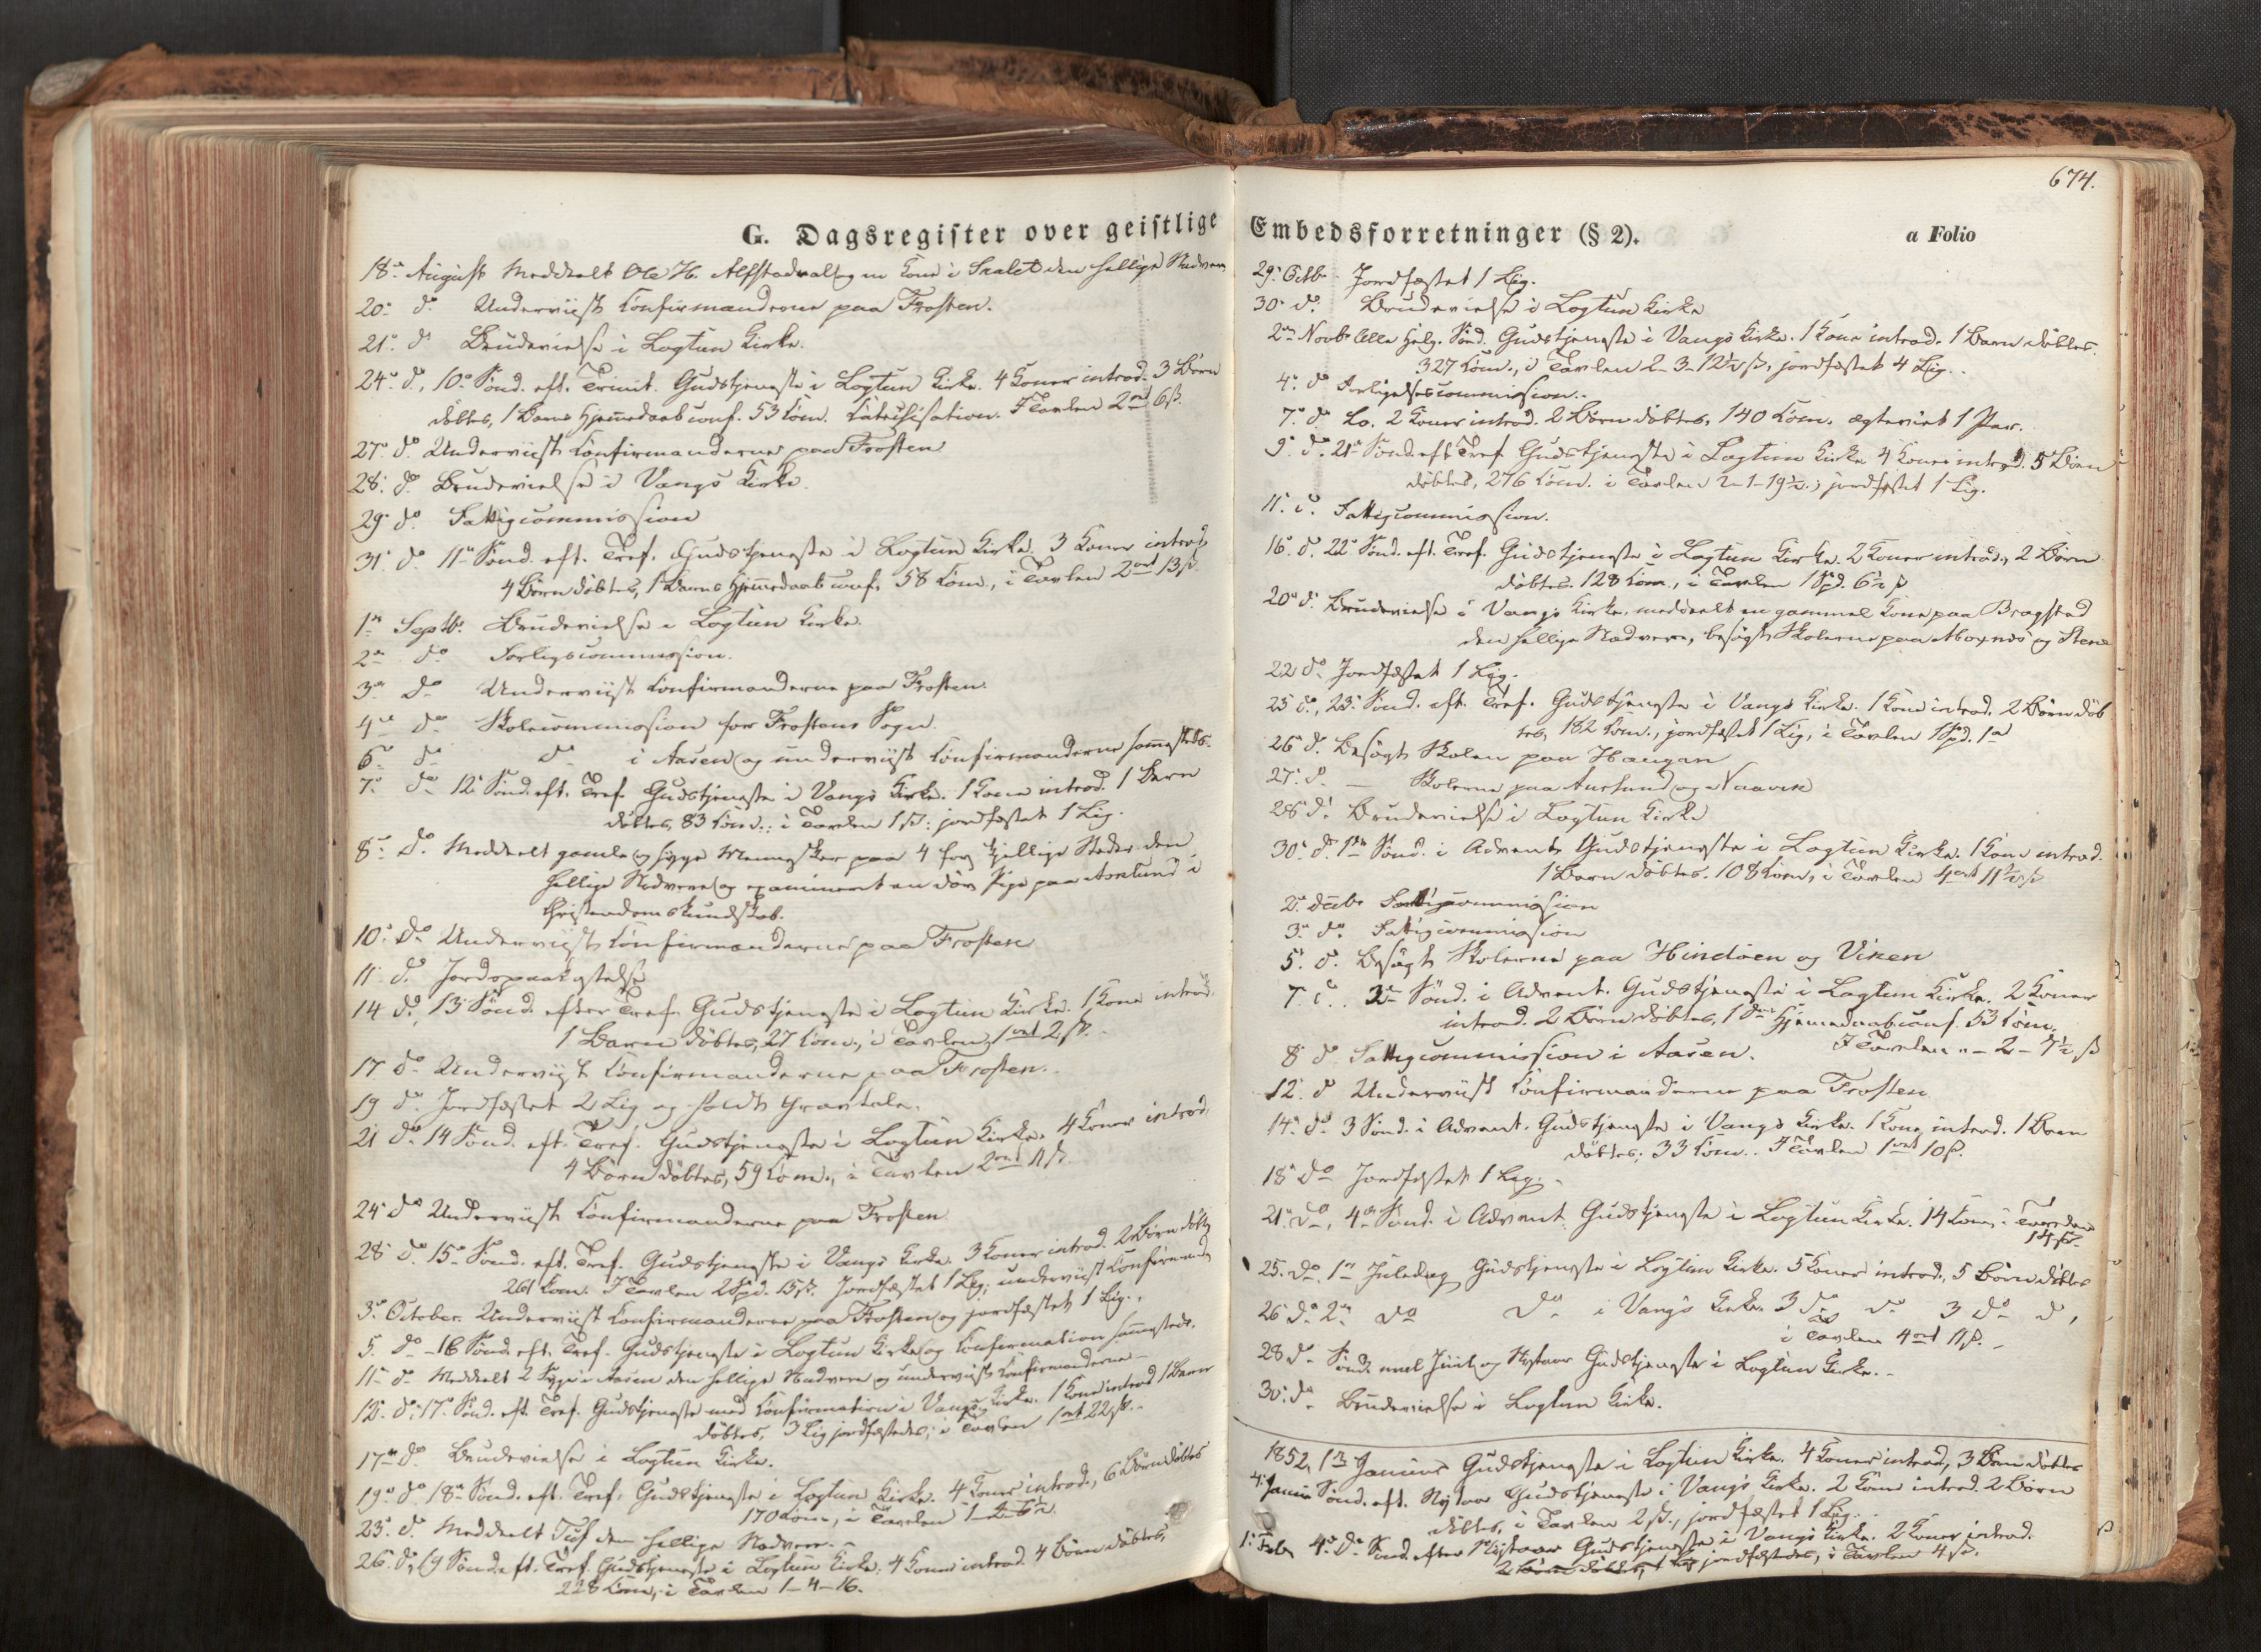 G. Dagsregister over geistlige
18de August Meddeelt Ole H. Alfstadvald og en Kone i Salet den hellige Nadvere
20de do Underviist Confirmanderne paa Frosten.
21de do Brudevielse i Logtun Kirke.
24de do, 10de Sønd. eft. Trinit. Gudstjeneste i Logtun Kirke. 4 Koner introd. 3 Børn
døbtes, 1 Barns Hjemmedaab conf. 53 Com. Catechisation. I Tavlen 2 ort 6 ß.
27de do Underviist Confirmanderne paa Frosten
28de do Brudevielse i Vangs Kirke.
29de do Fattigcommission
31de do 11te Sønd. eft. Tref. Gudstjeneste i Logtun Kirke. 3 Koner introd.
4 Børn døbtes, 1 Barns Hjemmedaab conf. 58 Com., i Tavlen 2 ort 13 ß.
1ste Septbr. Brudevielse i Logtun Kirke.
2den do Forligscommission.
3die do Underviist Confirmanderne paa Frosten.
4de do Skolecommission for Frostens Sogn.
6te do do i Aasen og underviist Confirmanderne sammesteds.
7de do 12te Sønd. eft. Tref. Gudstjeneste i Vangs Kirke. 1 Kone introd. 1 Barn
døbtes, 83 Com.; i Tavlen 1 ß; jordfæstet 1 Lig.
8de do Meddeelt gamle og syge Mennesker paa 4 forskjellige Steder den
hellige Nadvere og examineret en døv Pige paa Aurlund i
Christendomskundskab.
10de do Underviist Confirmanderne paa Frosten
11te do Jordspaakastelse
14 do, 13de Sønd. efter Tref. Gudstjeneste i Logtun Kirke. 1 Kone introd.
1 Barn døbtes, 27 Com., i Tavlen 1 ort 2 ß.
17 do Underviist Confirmanderne paa Frosten.
19 do Jordfæstet 2 Lig og holdt Gravtale.
21 do 14 Sønd. eft. Tref. Gudstjeneste i Logtun Kirke. 4 Koner introd.
4 Børn døbtes, 59 Com., i Tavlen 2 ort 11 ß.
24 do Underviist Confirmanderne paa Frosten
28 do 15de Sønd. eft. Tref. Gudstjeneste i Vangs Kirke. 3 Koner introd. 2 Børn døbtes
261 Com. I Tavlen 2 Spd. 15 ß. Jordfæstet 1 Lig; underviist Confirmand.
3die October. Underviist Confirmanderne paa Frosten og jordfæstet 1 Lig.
5. do 16 Sønd. eft. Tref. Gudstjeneste i Logtun Kirke og Confirmation sammesteds.
11te do Meddeelt 2 Syge i Aasen den hellige Nadvere og underviist Confirmanderne
12. do 17de Sønd. eft. Tref. Gudstjeneste med Confirmation i Vangs Kirke. 1 Kone introd 1 Barn
døbtes, 3 Lig jordfæstedes; i Tavlen 1 ort 22 ß.
17de do Brudevielse i Logtun Kirke.
19de do 18de Sønd. eft. Tref. Gudstjeneste i Logtun Kirke. 4 Koner introd., 6 Børn døbtes
170 Com., i Tavlen
23de do Meddeelt den hellige Nadvere.
26. do, 19 Sønd. eft. Tref. Gudstjeneste i Logtun Kirke. 4 Koner introd. 4 Børn døbtes,
228 Com., i Tavlen 1-4-16.
674.
Embedsforretninger (§ 2).
a Folio
29de Octbr. Jordfæstet 1 Lig.
30de do. Brudevielse i Logtun Kirke
2den Novbr. Alle Helg. Sønd. Gudstjeneste i Vangs Kirke. 1 Kone introd. 1 Barn døbtes.
327 Com., i Tavlen 2-3-12½ ß, jordfæstet 4 Lig.
4de do Forligelsescommission.
7de do Lo. 2 Koner introd. 2 Børn døbtes, 140 Com. ægteviet 1 Par.
9de do 21de Sønd. eft. Tref Gudstjeneste i Logtun Kirke 4 Koner introd. 5 Børn
døbtes, 276 Com. i Tavlen 2-1-19½; jordfæstet 1 Lig.
11te do Fattigcommission.
16de do. 22de Sønd. eft. Tref. Gudstjeneste i Logtun Kirke. 2 Koner introd., 2 Børn
døbtes. 128 Com., i Tavlen 1 Spd. 6½ ß
20de do Brudevielse i Vangs Kirke, meddeelt en gammel Kone paa Bragstad
den hellige Nadvere, besøgt Skolerne paa Aboxnes og Stene
22 do Jordfæstet 1 Lig.
23 do, 23de Sønd. eft. Tref. Gudstjeneste i Vangs Kirke. 1 Kone introd. 2 Børn døb
tes, 182 Com., jordfæstet 1 Lig, i Tavlen 1 Spd. 1 ort
26de do Besøgt Skolen paa Haugan
27de do — Skolerne paa Aurlund og Vaaven
28de do Brudevielse i Logtun Kirke
30de do. 1ste Sønd. i Advent Gudstjeneste i Logtun Kirke. 1 Kone introd.
1 Barn døbtes. 108 Com., i Tavlen 4 ort 11½ ß
2den Decbr. Fattigcommission
3die do Fattigcommission
5te do. Besøgt Skolerne paa Hindøen og Viken
7de do. 2den Sønd. i Advent. Gudstjeneste i Logtun Kirke. 2 Koner
introd. 2 Børn døbtes, 1 Barns Hjemmedaab conf. 53 Com.
I Tavlen „ - 2 - 7½ ß
8de do Fattigcommission i Aasen.
12te do Underviist Confirmanderne paa Frosten
14de do 3 Sønd. i Advent. Gudstjeneste i Vangs Kirke. 1 Kone introd. 1 Barn
døbtes; 33 Com. I Tavlen 1 ort 10 ß.
18de do Jordfæstet 1 Lig.
21de do, 4de Sønd. i Advent Gudstjeneste i Logtun Kirke. 14 Com. i Tavlen
14 ß.
25. do. 1ste Juledag Gudstjeneste i Logtun Kirke. 5 Koner introd., 5 Børn døbtes
26 do 2den do do i Vangs Kirke. 3 do do 3 do do,
i Tavlen 4 ort 11 ß.
28 do Sønd. mel Juul og Nytaar Gudstjeneste i Logtun Kirke.
30. do Brudevielse i Logtun Kirke.
1852, 1ste Januar Gudstjeneste i Logtun Kirke. 4 Koner introd., 3 Børn døbtes
4de Januar Sønd. eft. Nytaar Gudstjeneste i Vangs Kirke. 2 Kone introd. 2 Børn
døbtes, i Tavlen 2 ß., jordfæstet 1 Lig.
1. Febr. 4de do Sønd. efter Nytaar Gudstjeneste i Vangs Kirke. 2 Koner introd.
2 Børn døbtes, 1 Lig jordfæstedes, i Tavlen 4 ß.